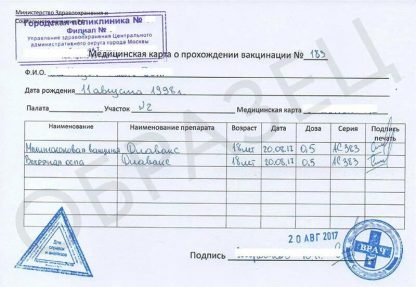 Министерство Здравоохранения и
Городская поликлиника №
Филиал №
Управление здравоохранения Центрального
административного округа города Москвы
Медицинская карта о прохождении вакцинации № 189
Ф.И.О.
Дата рождения 11 августа 1998 г.
Палата Участок №2 Медицинская карта
Наименование Наименование препарата Возраст Дата Доза Серия Подпись печать
вакцина 18 лет 20.08.17 0,5 АС383
Ветряная оспа 18 лет 20.08.17 0,5 АС383
ОБРАЗЕЦ
20 АВГ 2017
Для справок и анализов
ВРАЧ
Подпись